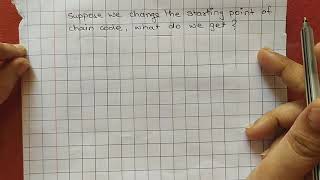 suppose we change the starting point of
chain code, what do we get ?